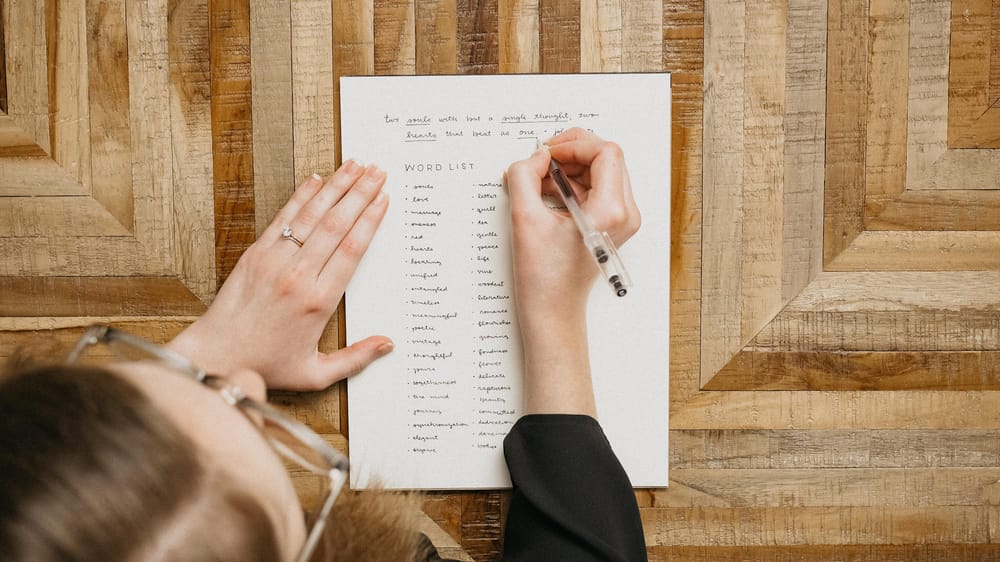 two souls with but a single thought, two
hearts that beat as one -
WORD LIST
• souls
• love
• marriage
• oneness
• red
• hearts
• beating
• unified
• entangled
• timeless
• meaningful
• poetic
• vintage
• thoughtful
• yours
• togetherness
• one mind
• journey
• synchronization
• elegant
• organic
• nature
• letter
• quill
• tea
• gentle
• peace
• life
• vine
• woodcut
• literature
• romance
• flourishes
• growing
• fondness
• flower
• delicate
• rapturous
• beauty
• committed
• dedication
• dancing